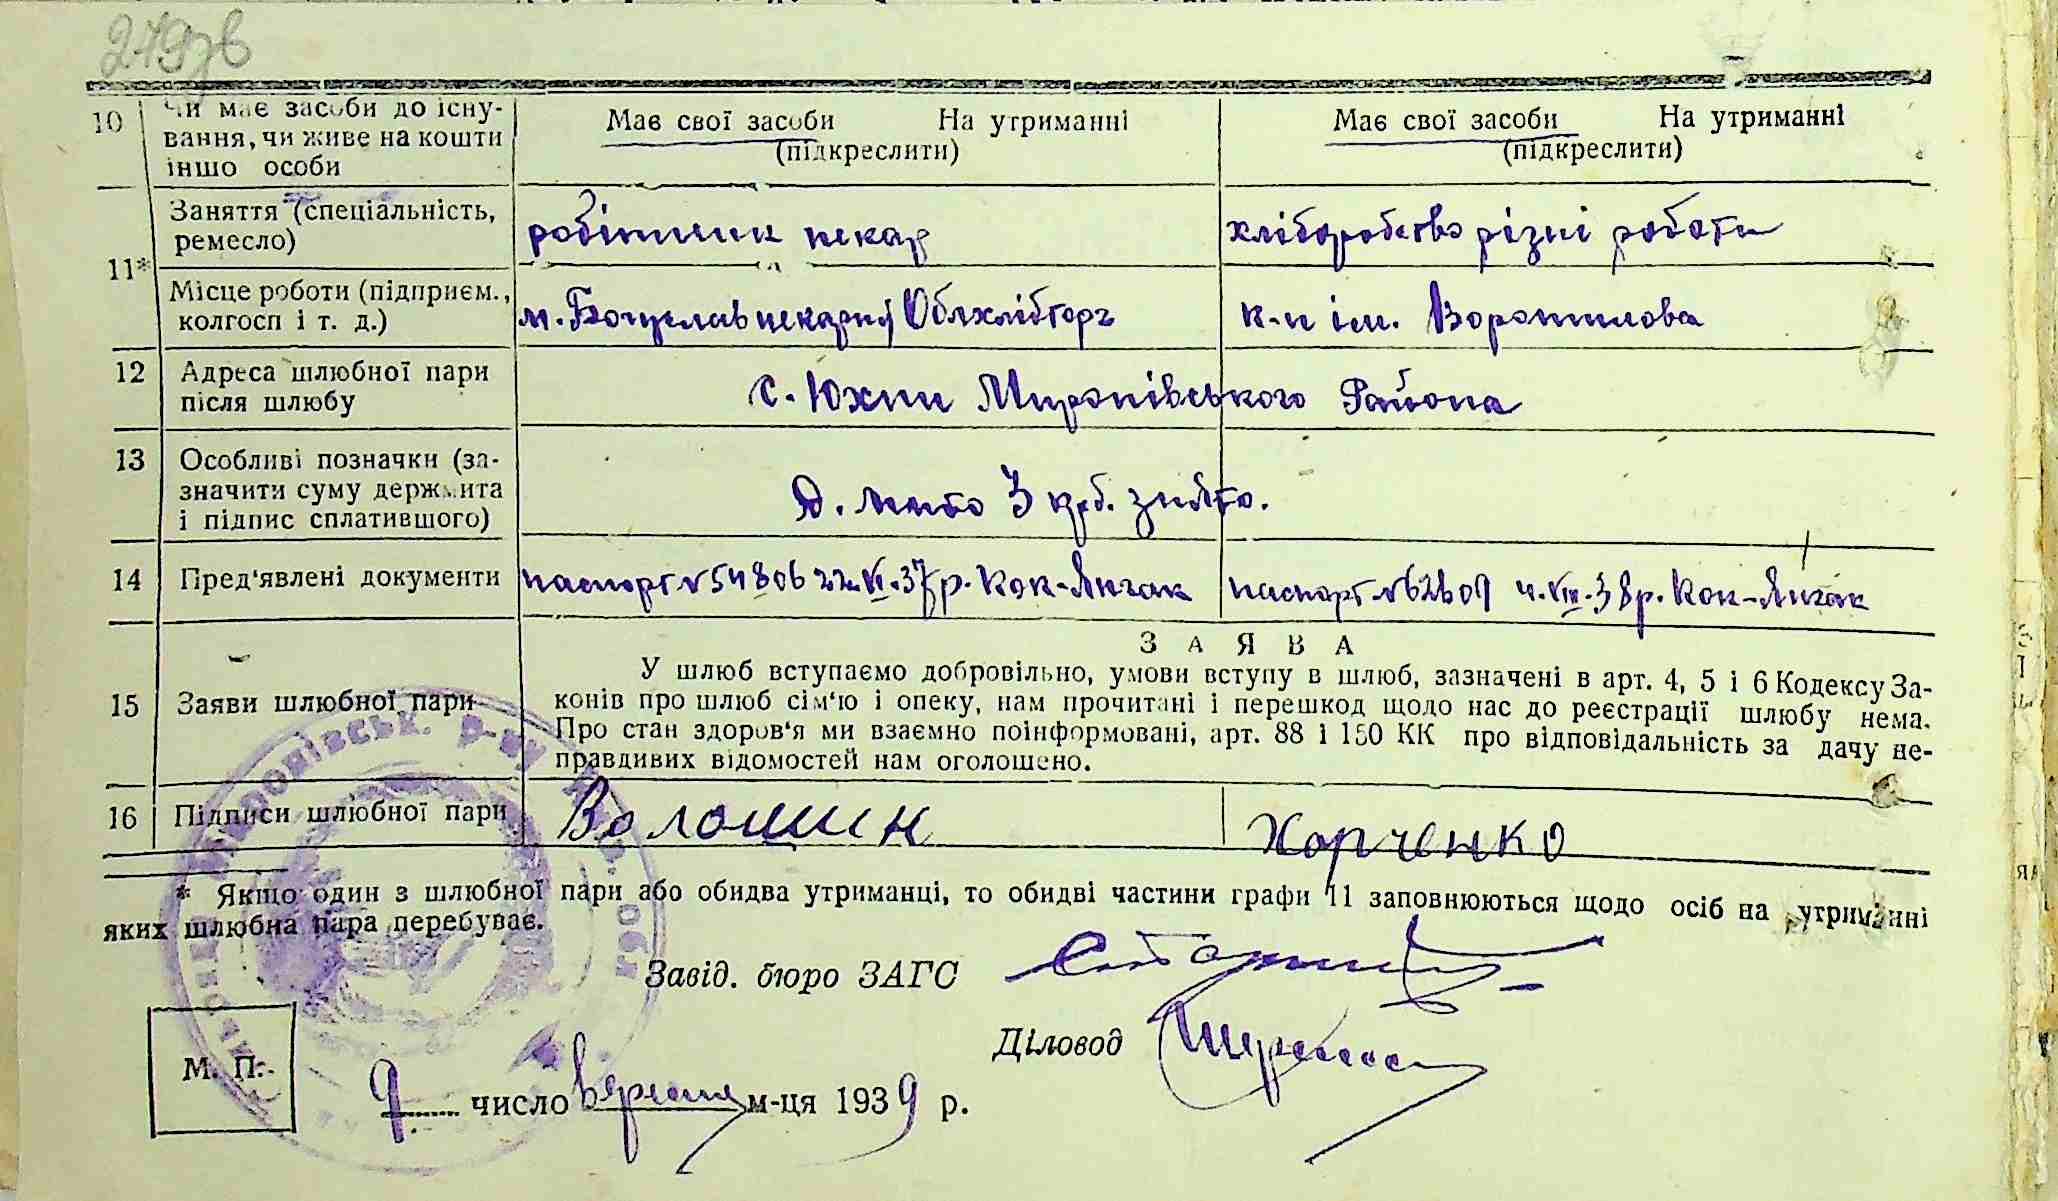 279зв
10 Чи має засоби до існу- Має свої засоби На утриманні Має свої засоби На утриманні
вання, чи живе на кошти (підкреслити) (підкреслити)
іншо особи
Заняття (спеціальність, робітник пекар хліборобство різні роботи
ремесло)
11*
Місце роботи (підприєм., м. Богуслав пекарня Облхлібторг к-п ім. Ворошилова
колгосп і т. д.)
12 Адреса шлюбної пари с. Юхни Миронівського Района
після шлюбу
13 Особливі позначки (за-
значити суму держмита Д. мито 3 крб. знято.
і підпис сплатившого)
14 Пред'явлені документи паспорт № 54806 22.VI.37 р. Кок-Янгак паспорт № 62809 4.VIII.38 р. Кок-Янгак
ЗАЯВА
У шлюб вступаємо добровільно, умови вступу в шлюб, зазначені в арт. 4, 5 і 6 Кодексу За-
15 Заяви шлюбної пари конів про шлюб сім'ю і опеку, нам прочитані і перешкод щодо нас до реєстрації шлюбу нема.
Про стан здоров'я ми взаємно поінформовані, арт. 88 і 150 КК про відповідальність за дачу не-
правдивих відомостей нам оголошено.
16 Підписи шлюбної пари Волошин Харченко
* Якщо один з шлюбної пари або обидва утриманці, то обидві частини графи 11 заповнюються щодо осіб на утриманні
яких шлюбна пара перебуває.
Завід. бюро ЗАГС
Діловод
М. П.
9 число вересня м-ця 1939 р.
Миронівськ. р-ну обл